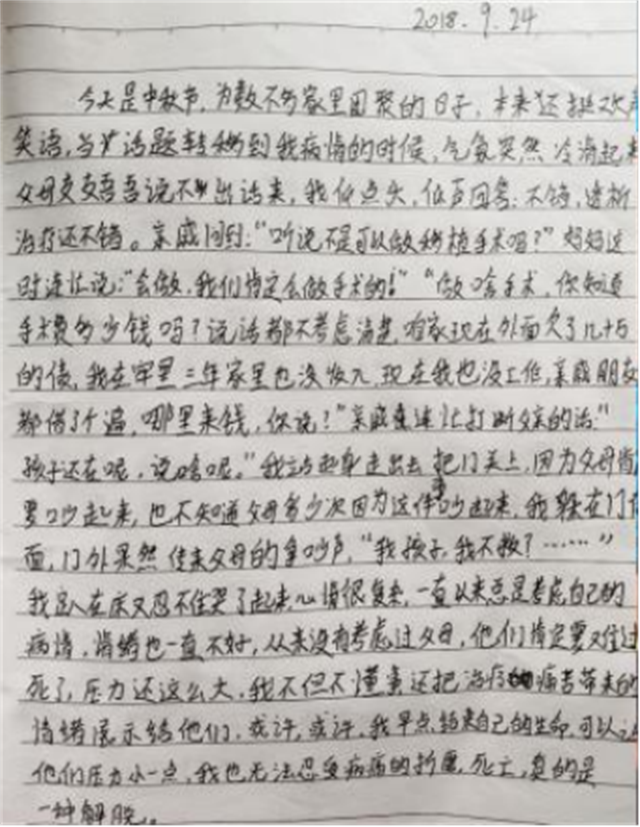 2018.9.24
今天是中秋节,为数不多家里团聚的日子,本来还挺欢声
笑语,当话题转移到我病情的时候,气氛突然冷清起来
父母支支吾吾说不出话来,我低点头,低声回答:不错,透析
治疗还不错。亲戚问到:“听说不是可以做移植手术吗?”妈妈这
时连忙说:“会做,我们肯定会做手术的!”“做啥手术,你知道
手术费多少钱吗?说话都不考虑清楚咱家现在外面欠了几十万
的债,我在牢里三年家里也没收入,现在我也没工作,亲戚朋友
都借了个遍,哪里来钱,你说?”亲戚连忙打断父亲的话:“
孩子还在呢,说啥呢。”我站起身走出去把门关上,因为父母肯
要吵起来,也不知道父母多少次因为这件事吵起来,我躲在门
面,门外果然传来父母的争吵声,“我孩子,我不救?……”
我趴在床又忍不住哭了起来,心情很复杂,一直以来总是考虑自己的
病情,情绪也一直不好,从来没有考虑过父母,他们肯定要难过
死了,压力还这么大,我不但不懂事还把治疗痛苦带来的
情绪展示给他们,或许,或许,我早点结束自己的生命,可以让
他们压力小一点,我也无法忍受病痛的折磨,死亡,真的是
一种解脱。